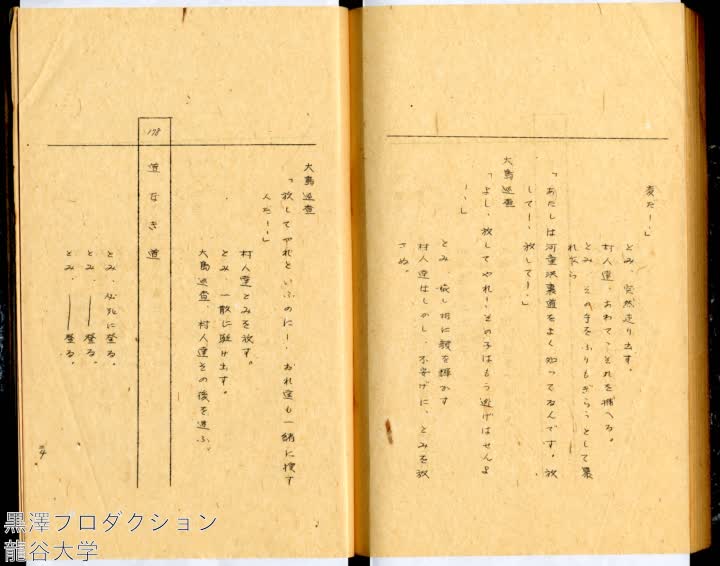 変だ！」
とみ、突然走り出す。
村人達、あわてゝそれを捕へる。
とみ、その手をふりもぎらうとして暴
れ乍ら
「あたしは河童沢裏道をよく知ってるんです。放
して！、放して！」
大島巡査
「よし、放してやれ！その子はもう逃げはせんよ
！」
とみ、嬉し相に顔を輝かす
村人達はしかし、不安げに、とみを放
さぬ。
大島巡査
「放してやれといふのに！、おれ達も一緒に捜す
んだ！」
村人達とみを放す。
とみ、一散に駈け出す。
大島巡査、村人達その後を追ふ。
178
道なき道
とみ、必死に登る。
とみ、――登る。
とみ、――登る。
黒澤プロダクション
龍谷大学